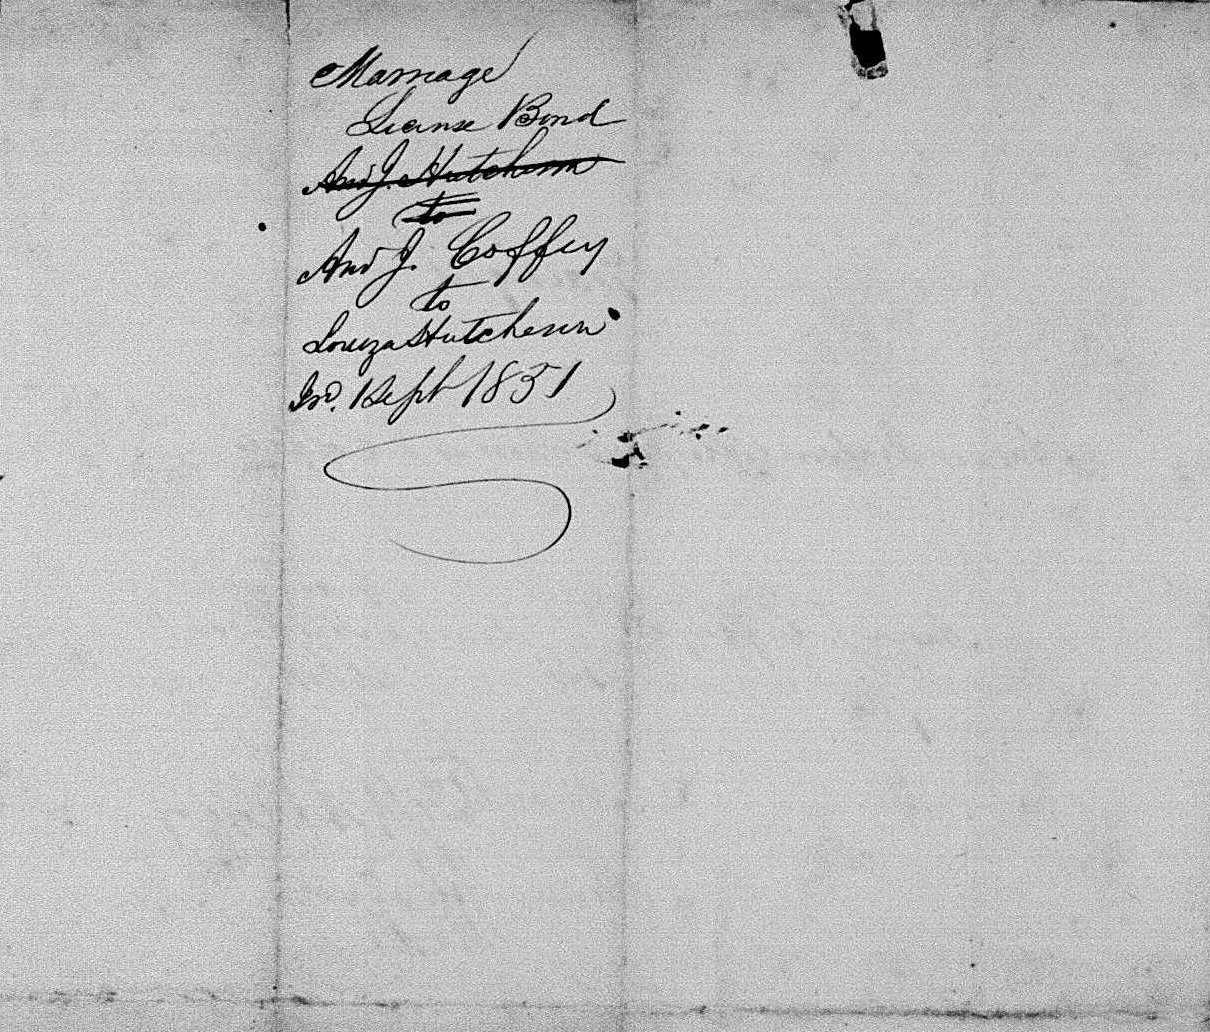 Marriage
License Bond
And J. Hutcherson
to
And J. Coffey
to
Louiza Hutcherson
Sept 1851